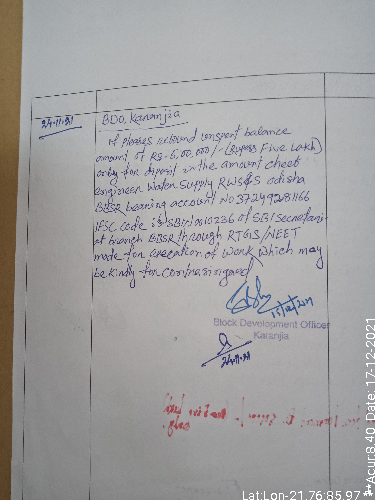 24.11.21
BDO, Karanjia
If please refund unspent balance
amount of RS- 5,00,000/- (Rupees Five Lakh)
only for deposit in the amount cheef
engineer Water Supply RWS&S odisha
BBSR bearing account No 37249281166
IFSC code is SBIN0010236 of SBI Secretari-
at branch BBSR through RTGS/NEFT
mode for execution of work which may
be kindly for
Block Development Officer
Karanjia
24.11.21
Lat:Lon-21.76:85.97 **Acur:8.40 Date: 17-12-2021